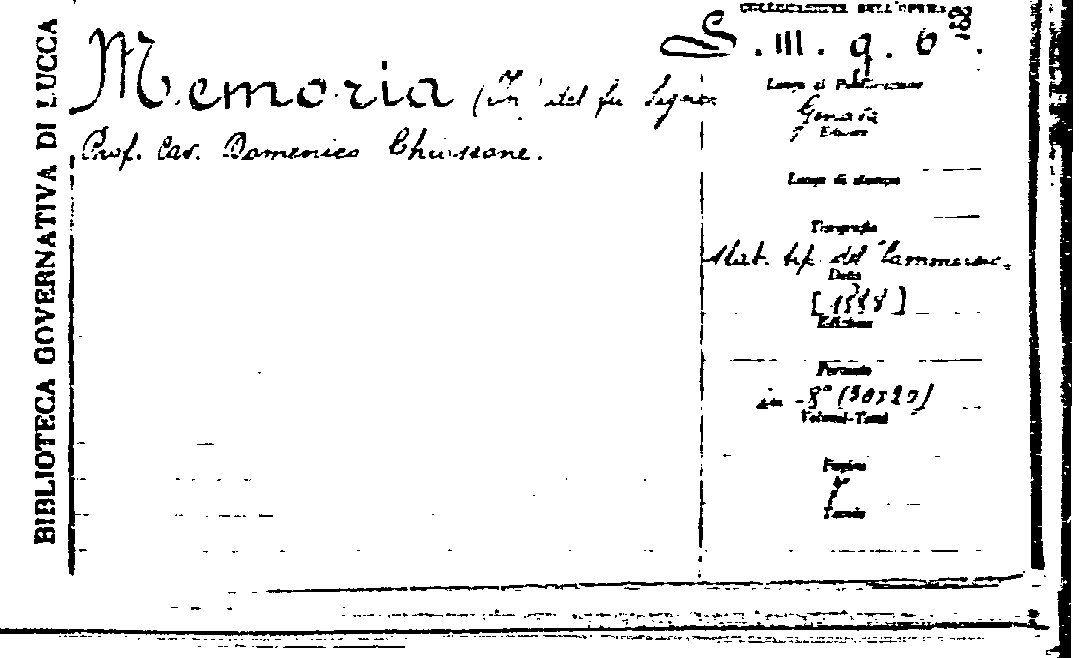 BIBLIOTECA GOVERNATIVA DI LUCCA
Memoria (In) del fu Signor
Prof. Cav. Domenico Chiossone.
COLLOCAZIONE DELL'OPERA
S. III. q. 6
Luogo di Pubblicazione
Genova
Editore
Luogo di stampa
Tipografia
Stab. tip. del Commercio.
Data
[1888]
Edizione
Formato
in -8° (30x20)
Volumi-Tomi
Pagine
Tavole